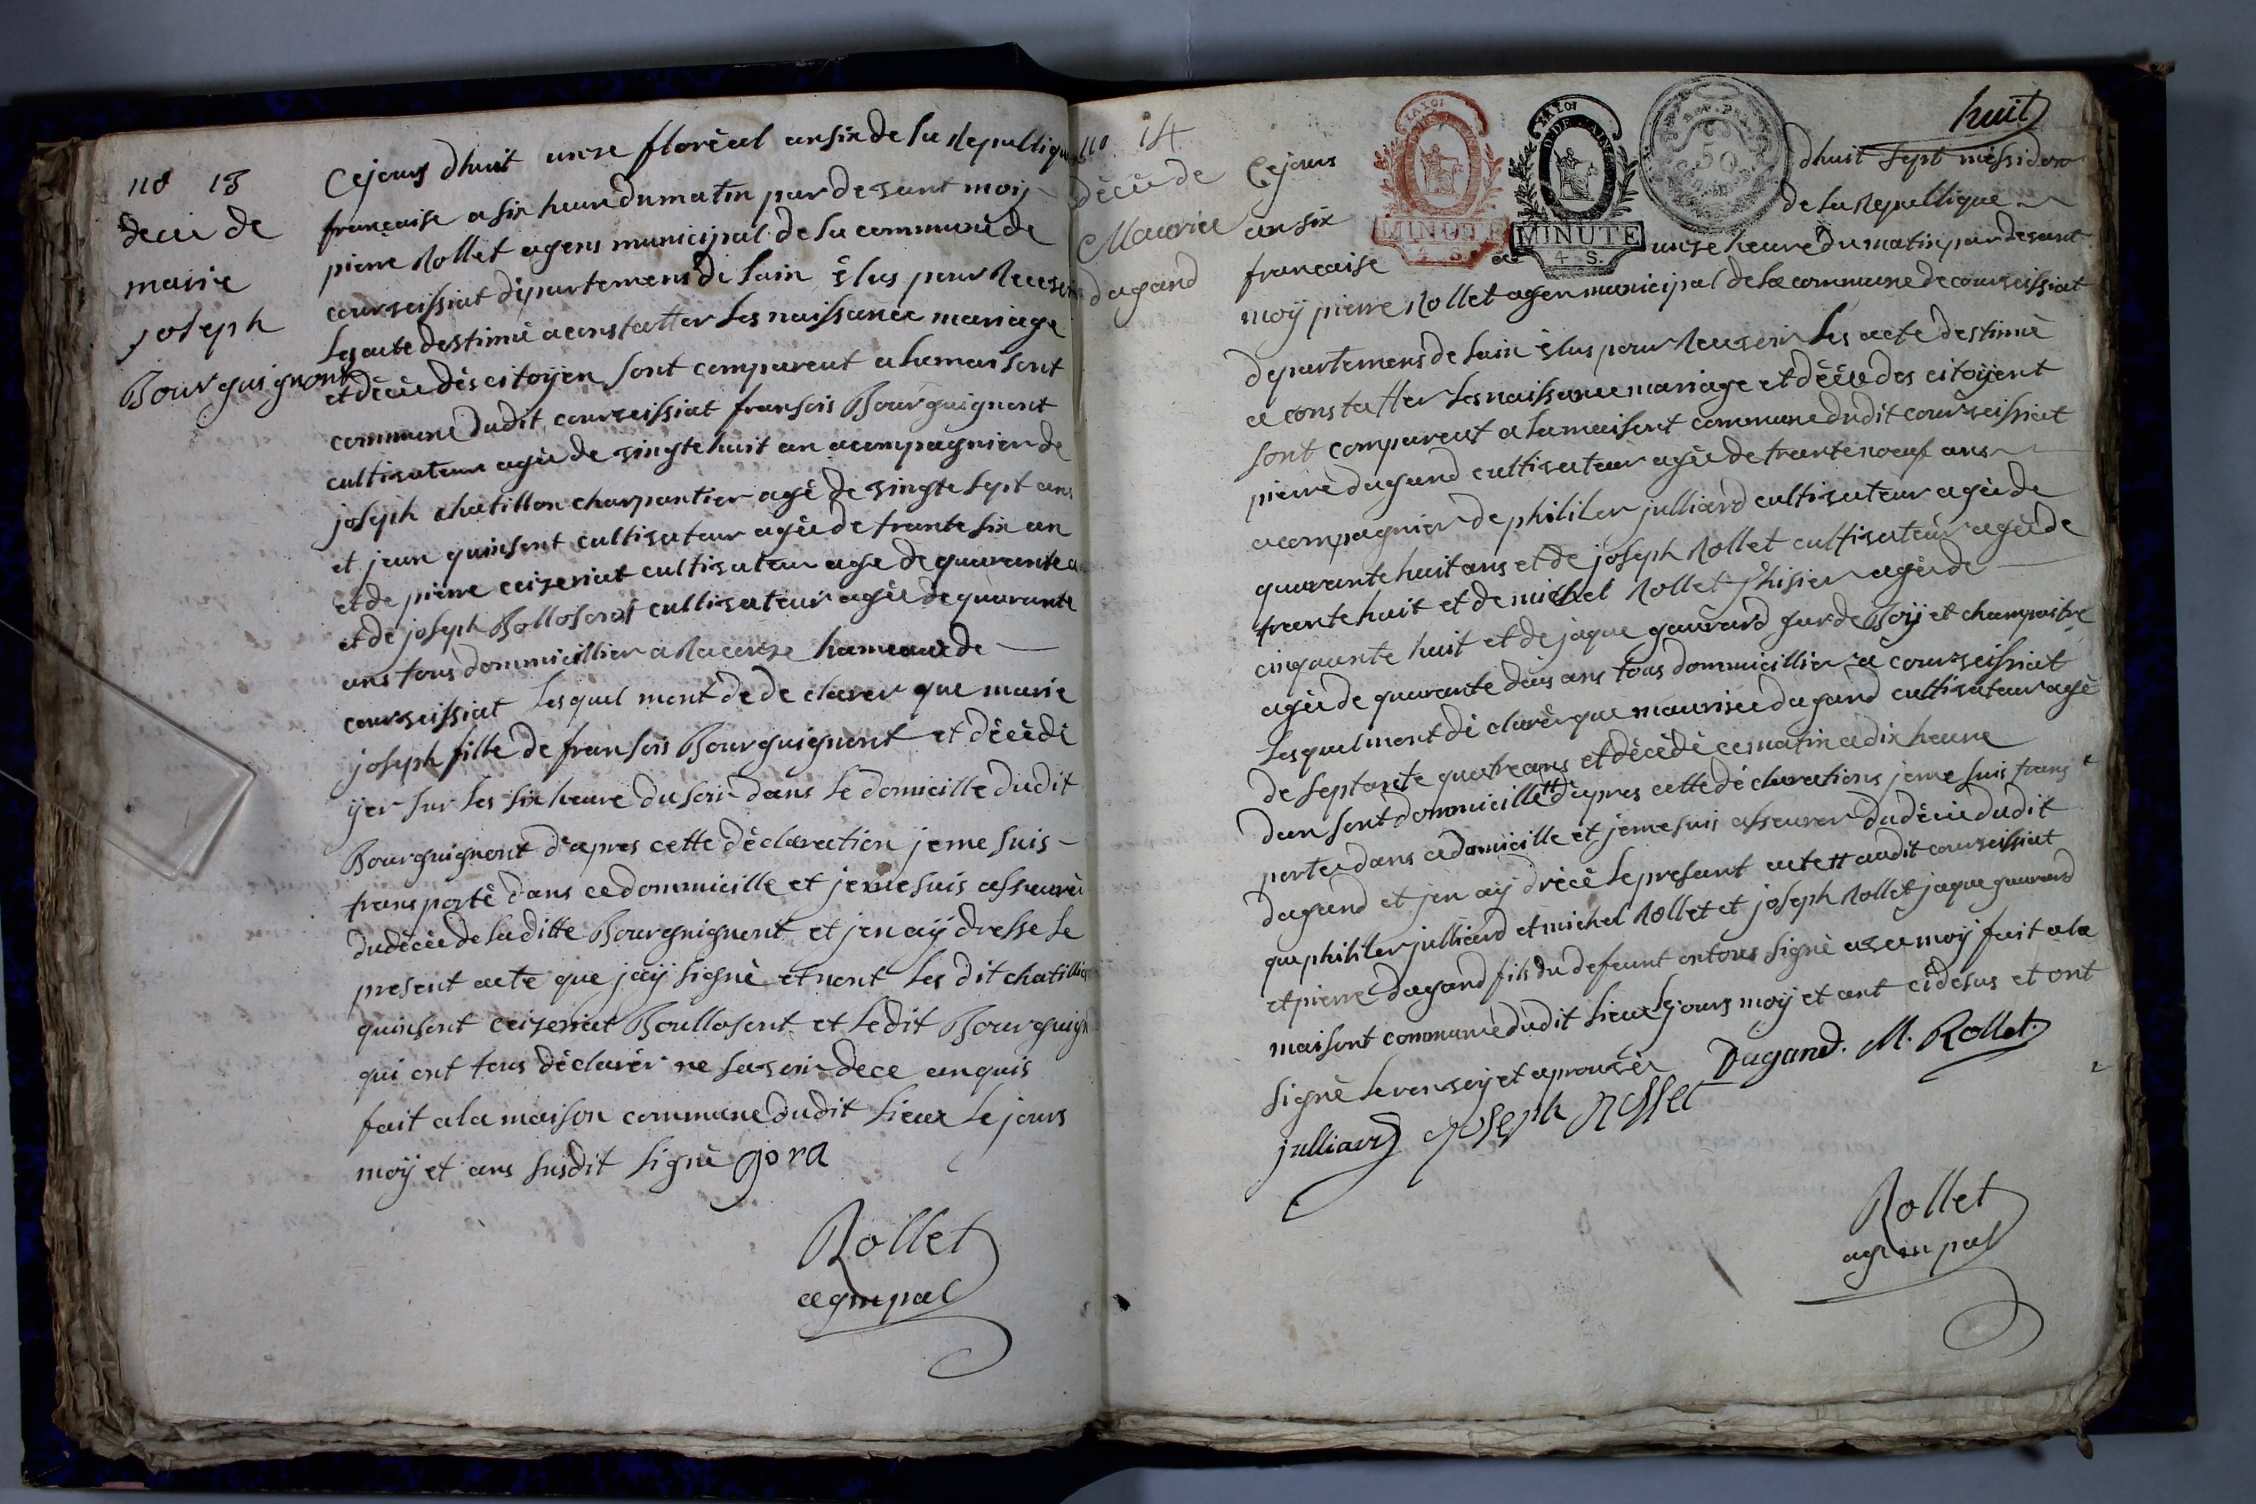 no 13
décè de
marie
joseph
Bourguignont
Cejours dhuit unze floréal ansix de la Republique
francaise a six heure du matin par desant moij
pierre Rollet agens municipal de la commune de
courseissiat départemens de lain élus pour Recesoir
les acte destiniè a constatter les naissance mariage
et décèe dès citoijen sont comparent a la maisont
commune dudit courseissiat fransois Bourguignont
cultisateur agèe de singte huit an acompagnier de
joseph chatillon charpantier agè de singte sept ans
et jean quinsont cultisateur agèe de trante six an
et de pierre ceizeriat cultisateur age de quarante
et de joseph Bollosont cultisateur agèe de quarante
ans tous dommicillier a Racouze hameaux de
courseissiat lesquel mont de declarer que marie
joseph fille de fransois Bourguignont et décèdè
ijer sur les six heure du soir dans le domicille dudit
Bourguignont d'apres cette dèclaration jeme suis
transportè dans ce dommicille et jeme suis asseurèe
du dècèe de laditte Bourguignont et jen aij dresse le
present acte que jaij signè et nont les dit chatillion
quinsont ceizeriat Boullosont et ledit Bourguign
qui ont tous dèclarèr ne sasoir dece anquis
fait a la maison commune dudit lieux le jours
moij et ans susdit signè
Rollet
agmpal
huit
no 14
décèe de
Maurice
dagand
MINUTE
MINUTE
4 S.
50
Cejours dhuit sept messidor
an six de la Republique
francaise a unze heure du matin par desant
moij pierre Rollet agen municipal de la commune de courseissiat
departemens de lain élus pour Recesoir les acte destiniè
a constatter les naissance mariage et décèe des citoijent
sont comparent a la maisont commune dudit courseissiat
pierre dagand cultisateur agèe de trante noeuf ans
acompagnier de phililer julliard cultisateur agèe de
quarante huit ans et de joseph Rollet cultisateur agèe de
trante huit et de michel Rollet thisier agèe de
cinqaunte huit et de jaque gauvard garde Boij et champaitre
agèe de quarante deus ans tous dommicillier a courseissiat
lesquel mont déclarè que maurice dagand cultisateur agè
de septante quatre ans et décèdè ce matin a dix heure
dan sont dommicille d'apres cette déclarations jeme suis trans
porter dans ce domicille et jeme suis asseurer du décèe dudit
dagand et jen aij drècè le present acte audit courseissiat
que phililer julliard et michel Rollet et joseph Rollet jaque gauvard
et pierre dagand fils du defeunt ont ous signè asec moij fait a la
maisont commune dudit lieux le jours moij et ant cidesus et ont
signè le ransoij et aprouser Dagand. M. Rollet
julliard joseph Rollet
Rollet
agmpal